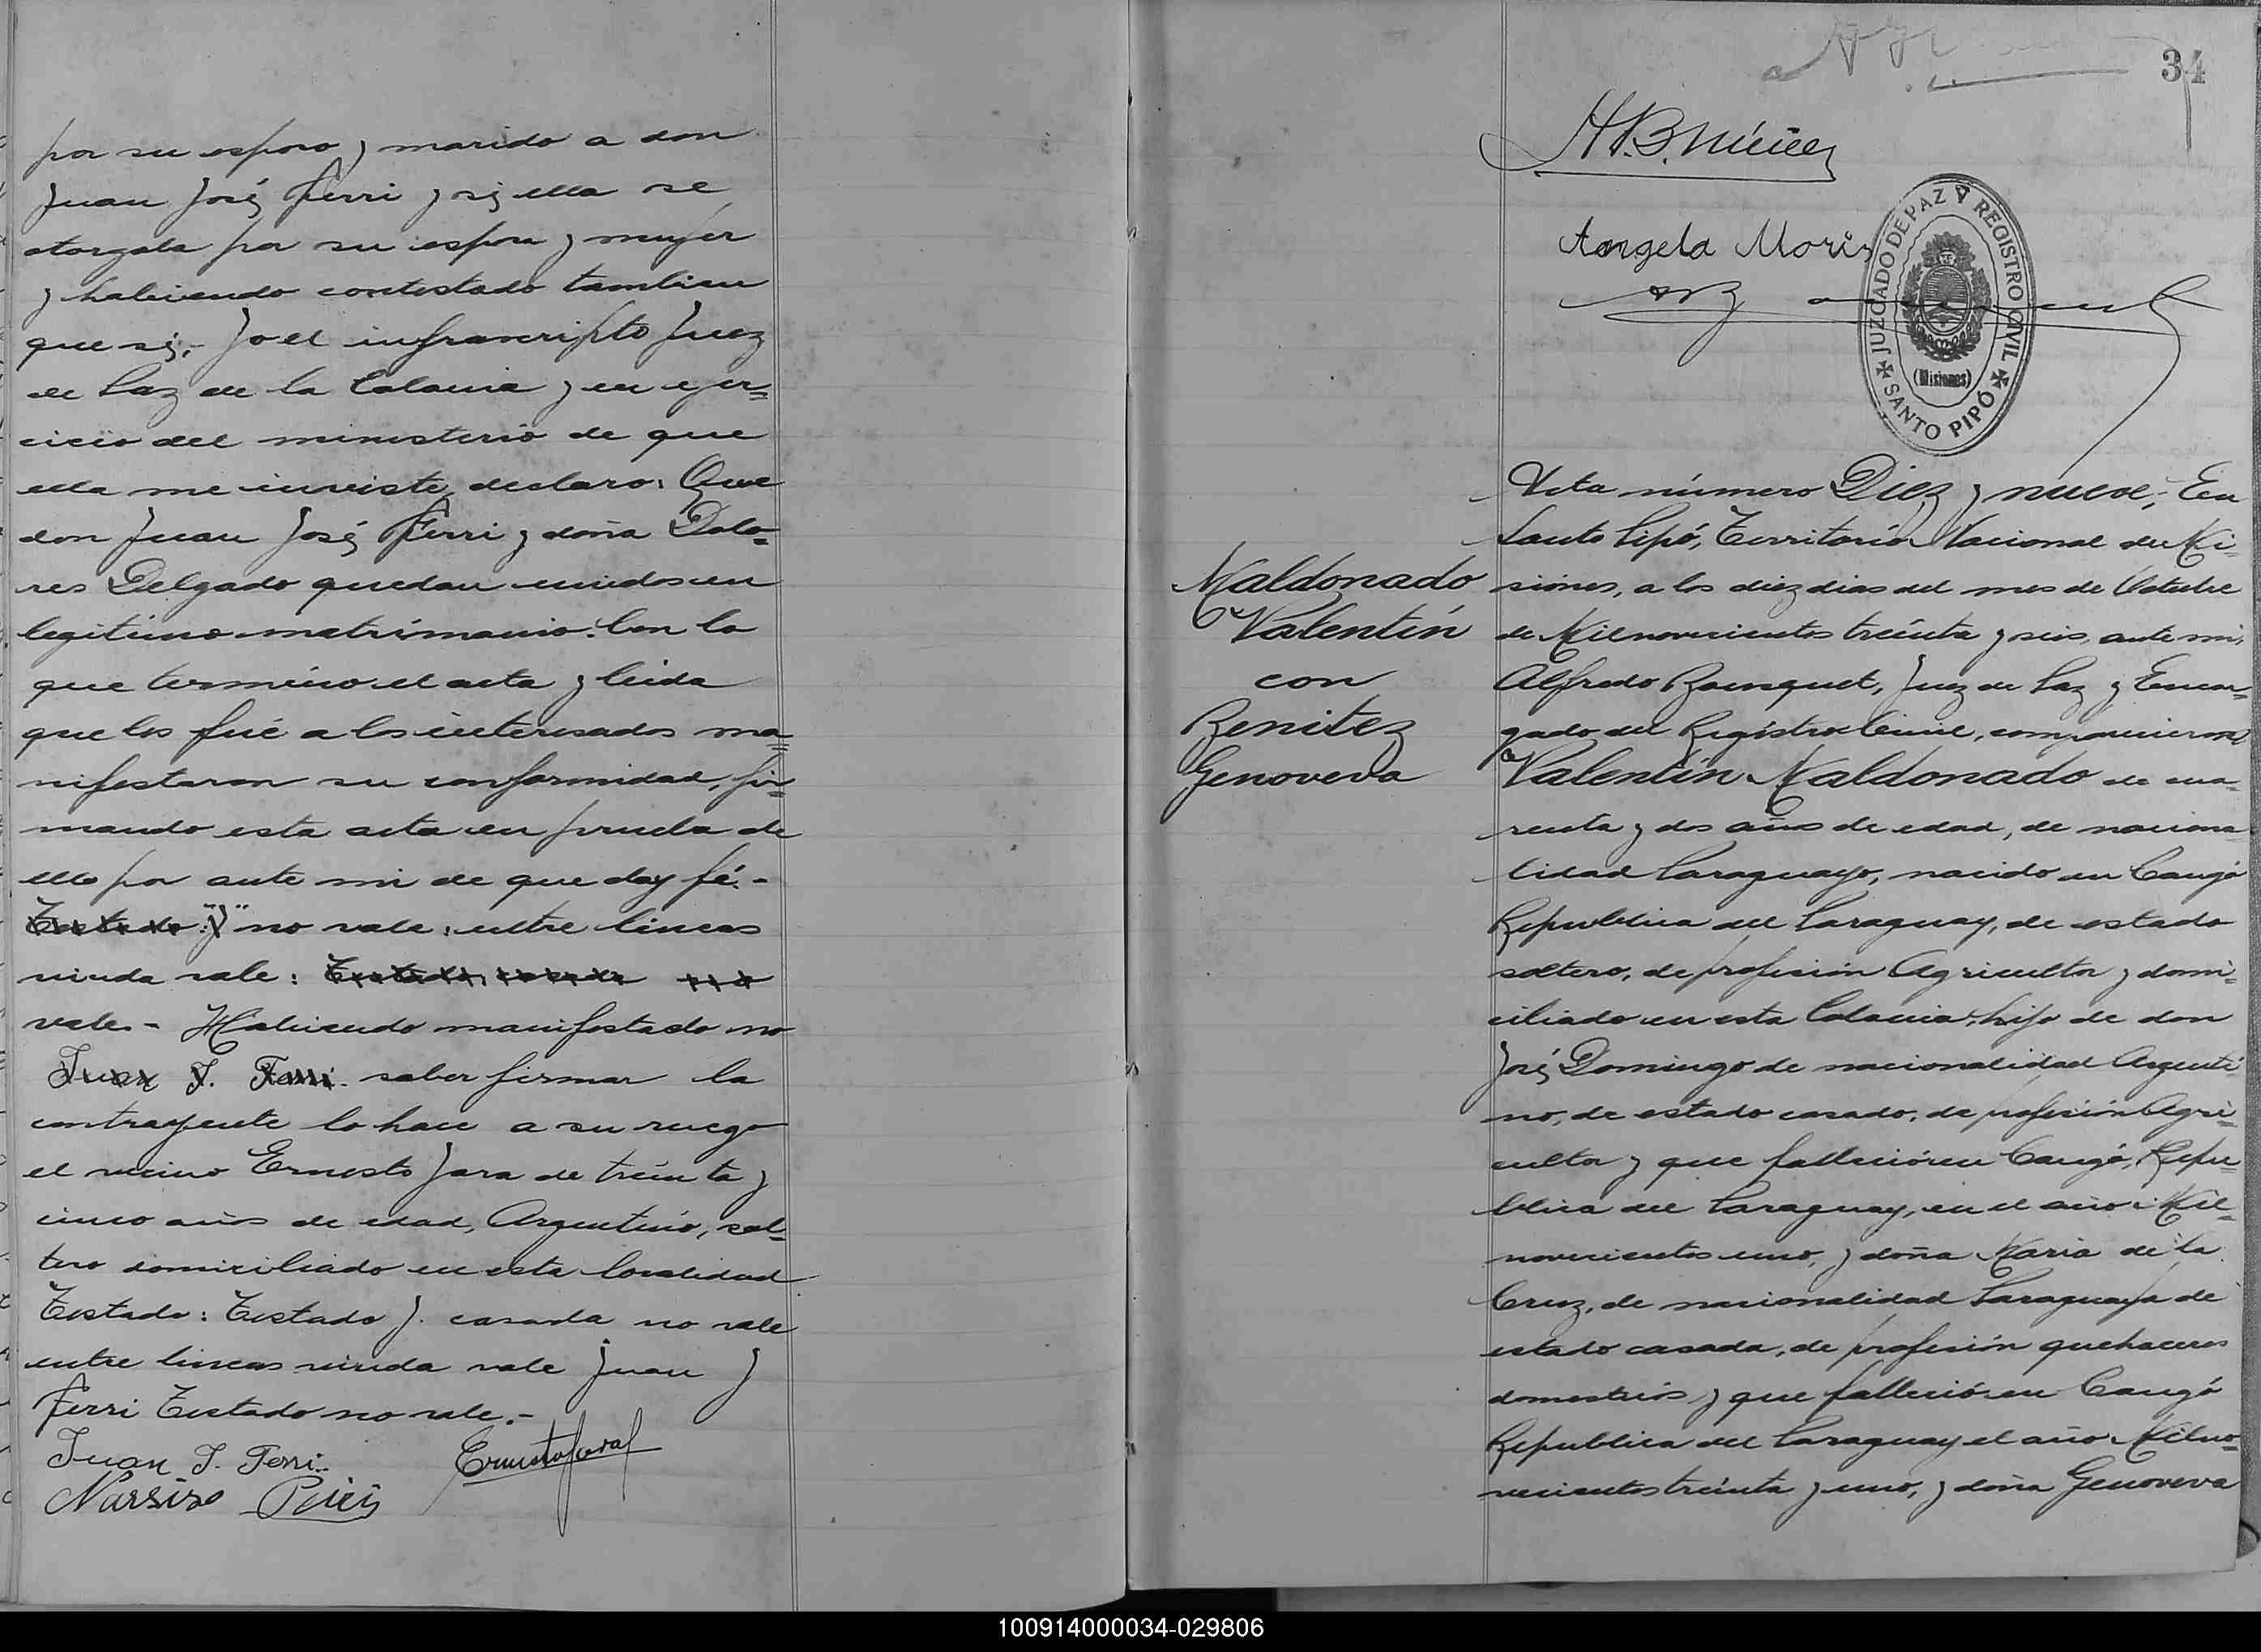 por su esposo y marido a don
Juan José Ferri y si ella se
otorgaba por su esposa y mujér
y habiendo contestado tambien
que si;- Yo el infrascripto Juez
de Paz de la Colonia y en ejer=
cicio del ministerio de que
ella me inviste, declaro: Que
don Juan José Ferri y doña Dolo=
res Delgado quedan unidos en
legitimo matrimonio. Con lo
que termino el acta y leida
que les fué a los interesados ma=
nifestaron su conformidad, fir=
mando esta acta en prueba de
ello por ante mi de que doy fé.-
Testado: "y" no vale: entre lineas
viuda vale: Testado: casada no
vale.- Habiendo manifestado no
Juan J. Ferri. saber firmar la
contrayente lo hace a su ruego
el vecino Ernesto Jara de treinta y
cinco años de edad, Argentino, sol=
tero domiciliado en esta localidad
Testado: Testado y. casada no vale
entre lineas viuda vale Juan J
Ferri Testado no vale.-
Juan J. Ferri.
Ernesto Jara
Narsiso
34
H.B. Núñez
Angela Moris
JUZGADO DE PAZ Y REGISTRO CIVIL
(Misiones)
SANTO PIPÓ
Maldonado
Valentín
con
Benitez
Genoveva
Acta número Diez y nueve;- En
Santo Pipó, Territorio Nacional de Mi=
siones, a los diez dias del mes de Octubre
de Mil novecientos treinta y seis, ante mi,
Alfredo Bousquet, Juez de Paz y Encar=
gado del Registro Civil, comparecieron
Valentín Maldonado de cua=
renta y dos años de edad, de naciona
lidad Paraguayo, nacido en Cangó
Republica del Paraguay, de estado
soltero, de profesión Agricultor y domi=
ciliado en esta Colonia, hijo de don
José Domingo de nacionalidad Argenti
no, de estado casado, de profesión Agri=
cultor y que falleció en Cangó, Repu=
blica del Paraguay, en el año Mil=
novecientos uno, y doña Maria de la
Cruz, de nacionalidad Paraguaya de
estado casada, de profesión quehaceres
domesticos y que falleció en Cangó
Republica del Paraguay el año Milno=
vecientos treinta y uno, y doña Genoveva
100914000034-029806